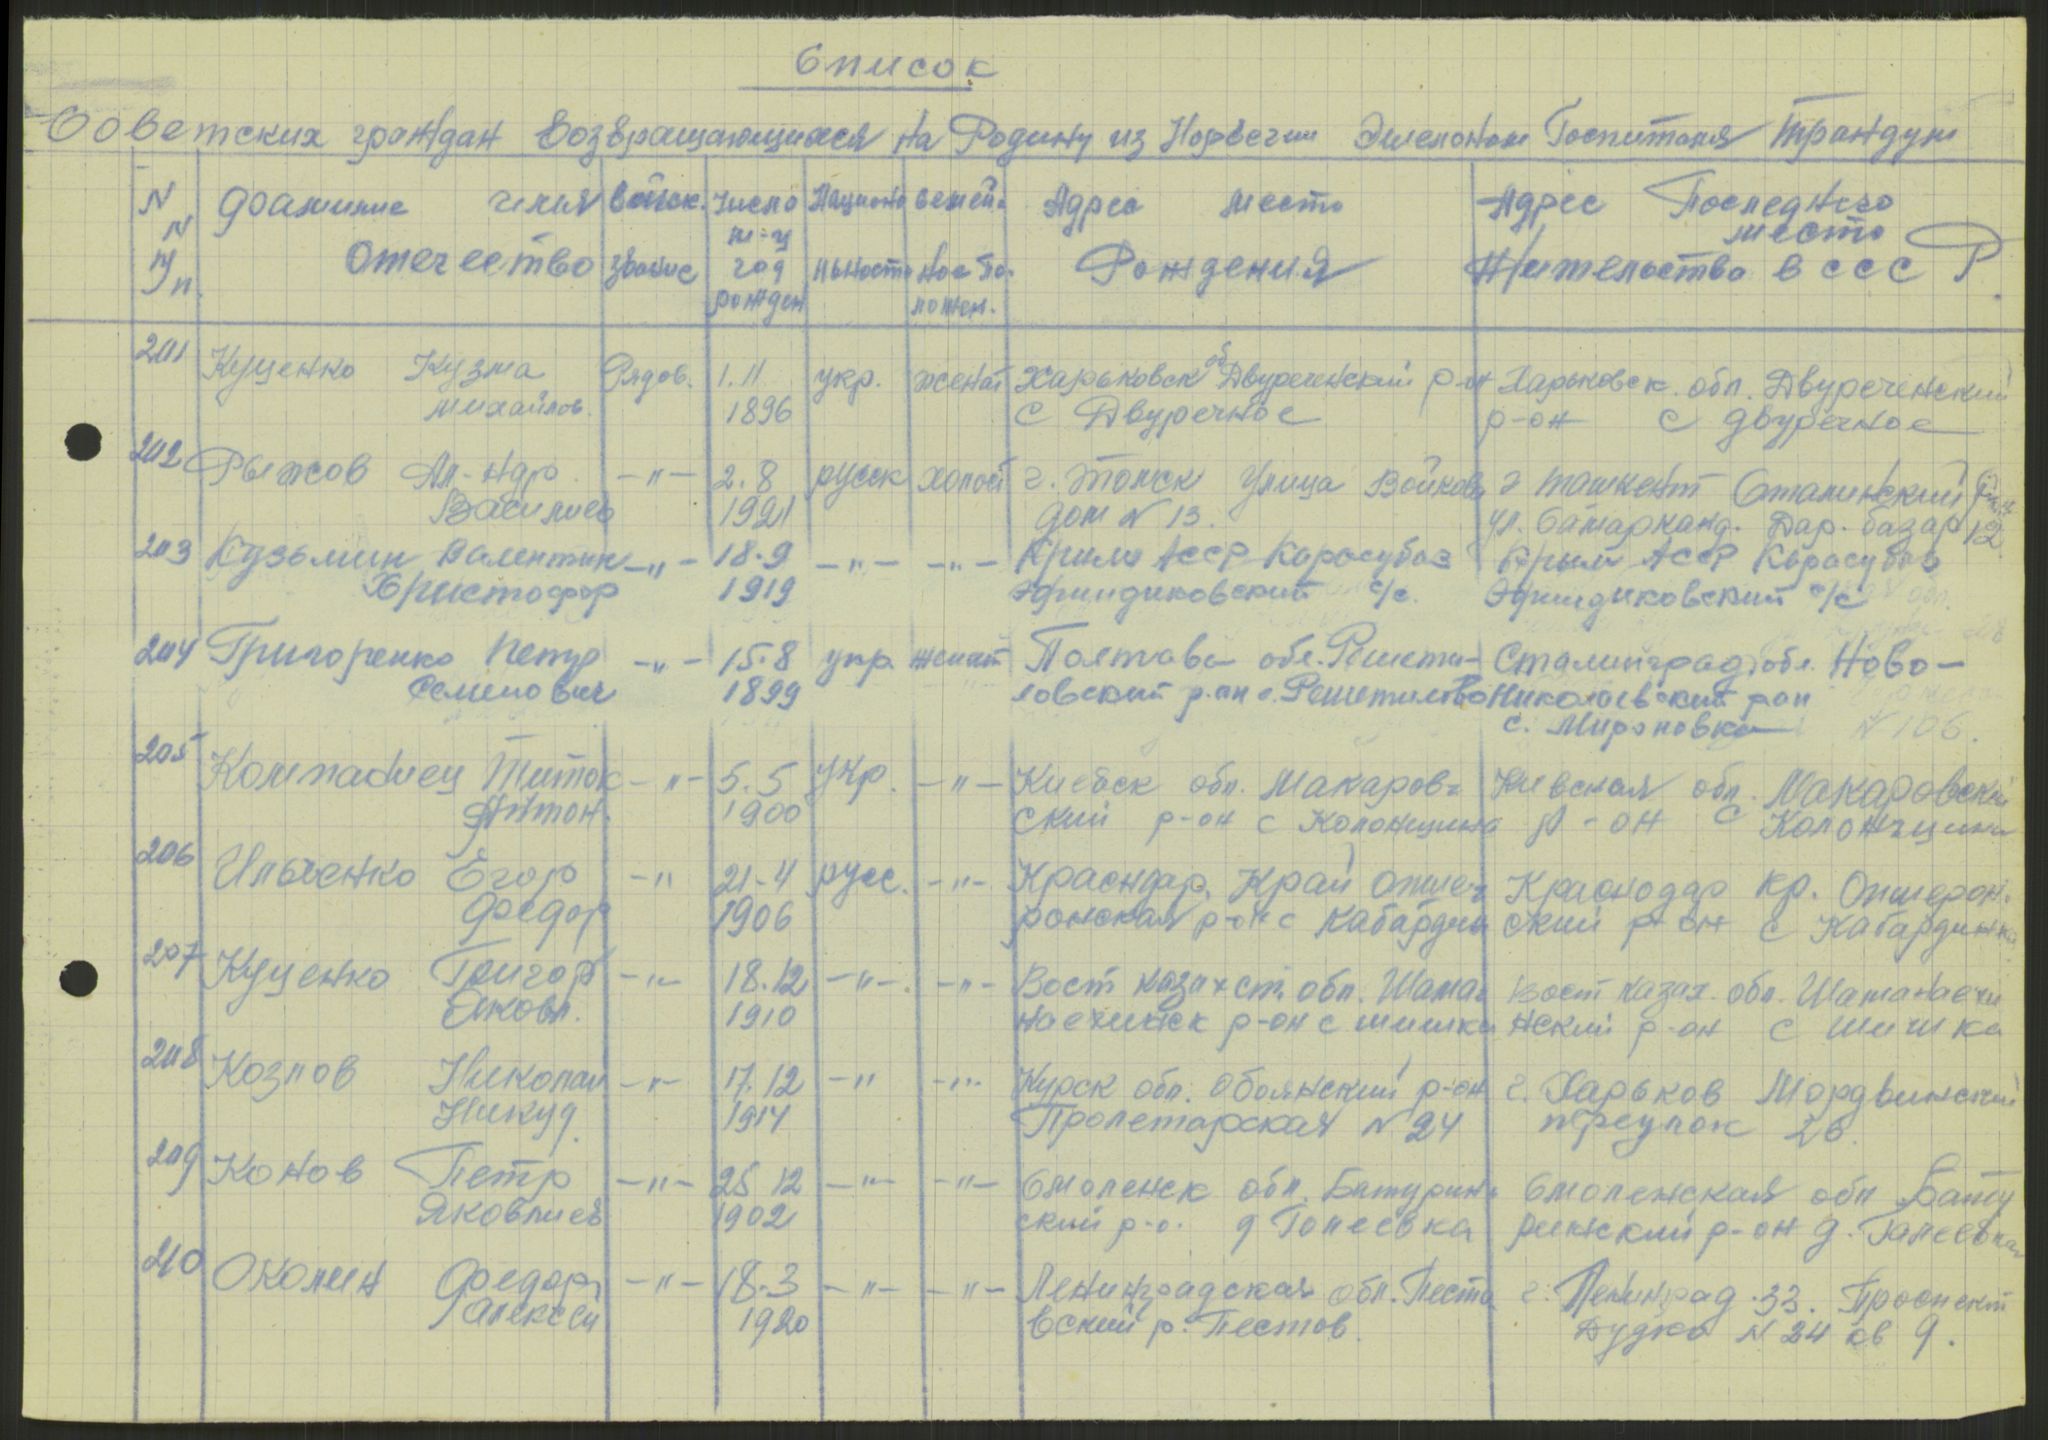 Список
Советских граждан возвращающихся на Родину из Норвегии Эшелоном Госпиталя Трандум
N N п/п Фамилие имя Отечество
Воиск. звание
Число м-ц год рожден
Национальность
Семейное положен.
Адрес место Рождения
Адрес Последнего место Жительства в СССР
201 Куценко Кузма Рядов. 1.11 укр. женат Харьковск об Двуреченский р-он Харьковск. обл. Двуреченский
Михайлов. 1896 с Двуречное р-он с Двуречное
202 Рыжов Ал-ндр -"- 2.8 русск холост г. Томск улица Войкова г Ташкент Сталинский
Васильев 1921 дом N 13. ул. Самарканд. Дар. базар 12
203 Кузьмин Валентин -"- 18.9 -"- -"- Крым АССР Карасубаз Крым АССР Карасубаз
Христофор 1919 с/с. с/с
204 Григоренко Петр -"- 15.8 укр. женат Полтава обл. Решети- Сталинград. обл. Ново-
Семенович 1899 ловский р.он с. Решетилово Николаевский рон
с. Мироновка N 106.
205 Компаниец Титок -"- 5.5 укр. -"- Киевск обл. Макаров- Киевская обл. Макаровский
Антон. 1900 ский р-он с Колонщина р-он с Колонщина
206 Ильченко Егор -"- 21-4 русс. -"- Краснодар. Край Апше- Краснодар кр. Апшерон.
Федор 1906 ронская р-он с Кабардин ский р-он с Кабардинка
207 Куценко Григор -"- 18.12 -"- -"- Вост казахст. обл. Шама- Вост казах. обл. Шаманаехи
Яковл. 1910 наехинск р-он с шишка нский р-он с шишка
208 Козлов Николай -"- 17.12 -"- -"- Курск обл. Обоянский р-он г. Харьков Мордвинский
Никуд 1914 Пролетарская N 24 переулок 26.
209 Конов Петр -"- 25 12 -"- -"- Смоленск обл. Батурин- Смоленская обл Бату
Яковлиев 1902 ский р-о. д Гопеевка ринский р-он д. Гапеевка
210 Околин Федор -"- 18.3 -"- -"- Ленинградская обл. Песто г. Ленинград 33. Проспект
Алексей 1920 вский р. Пестов. Дудко N 24 кв 9.